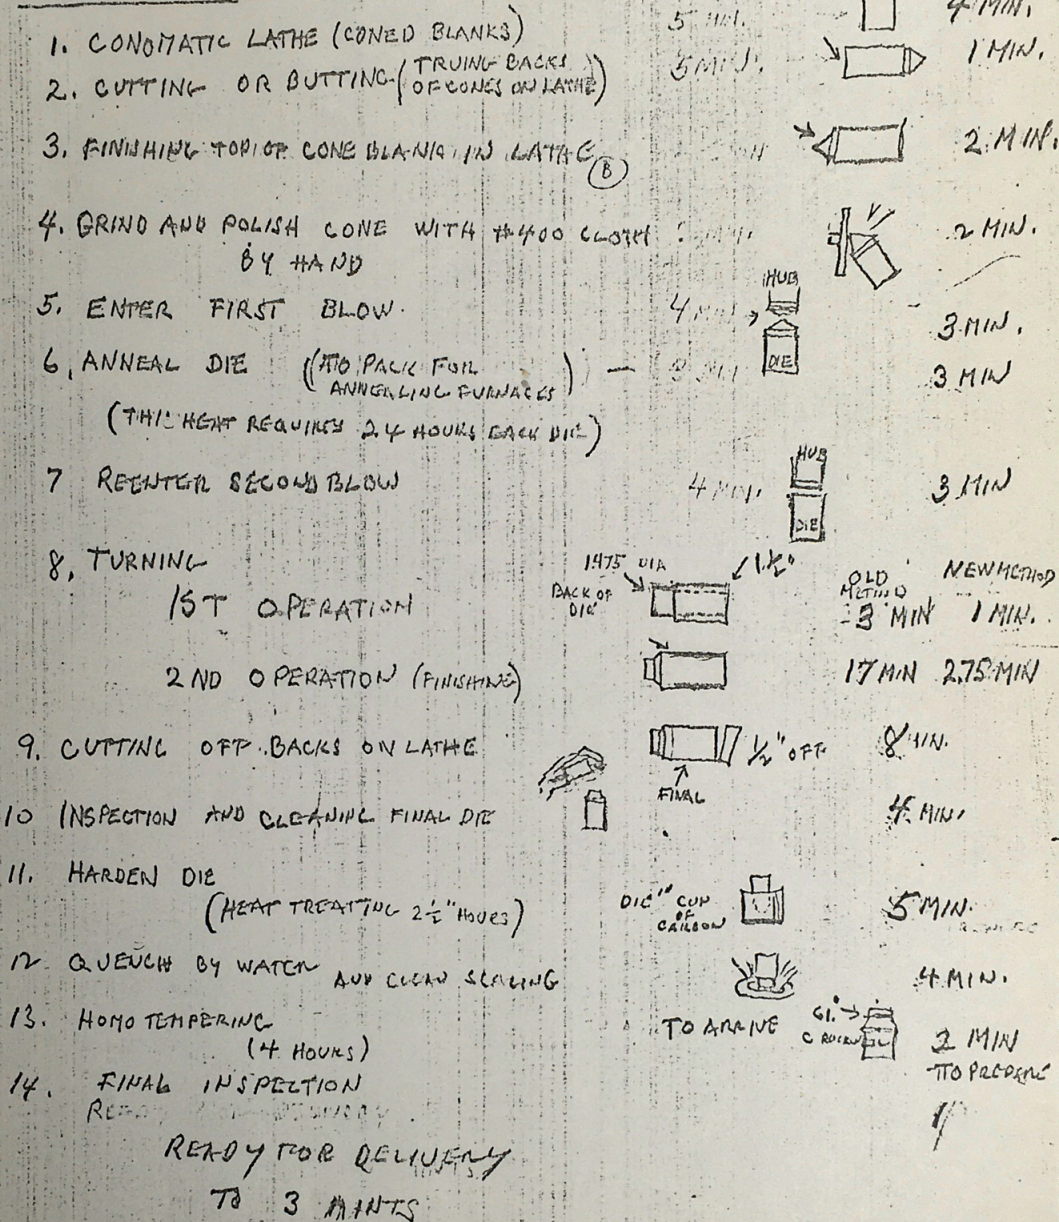 5 MIN. 4 MIN.
1. CONOMATIC LATHE (CONED BLANKS)
5 MIN. 1 MIN.
2. CUTTING OR BUTTING (TRUING BACKS
OF CONES ON LATHE)
3. FINISHING TOP OF CONE BLANK IN LATHE 2 MIN.
B
4. GRIND AND POLISH CONE WITH #400 CLOTH 2 MIN.
BY HAND
HUB
5. ENTER FIRST BLOW. 4 MIN 3 MIN.
DIE
6. ANNEAL DIE (TO PACK FOR 3 MIN
ANNEALING FURNACES)
(THIS HEAT REQUIRES 24 HOURS EACH DIE)
HUB
7 REENTER SECOND BLOW 4 MIN. 3 MIN
DIE
8. TURNING 1475 DIA 1½"
BACK OF
DIE
OLD
METHOD NEW METHOD
1ST OPERATION 3 MIN 1 MIN.
2ND OPERATION (FINISHING) 17 MIN 2.75 MIN
9. CUTTING OFF BACKS ON LATHE 1/2" OFF 8 MIN.
FINAL
10 INSPECTION AND CLEANING FINAL DIE 4 MIN.
11. HARDEN DIE
(HEAT TREATING 2½" HOURS) DIE IN CUP
OF
CARBON 5 MIN.
12 QUENCH BY WATER AND CLEAN SCALING 4 MIN.
13. HOMO TEMPERING TO ARRIVE 61.° C ROCKWELL 2 MIN
(4 HOURS) TO PREPARE
14. FINAL INSPECTION
READY FOR DELIVERY
TO 3 MINTS